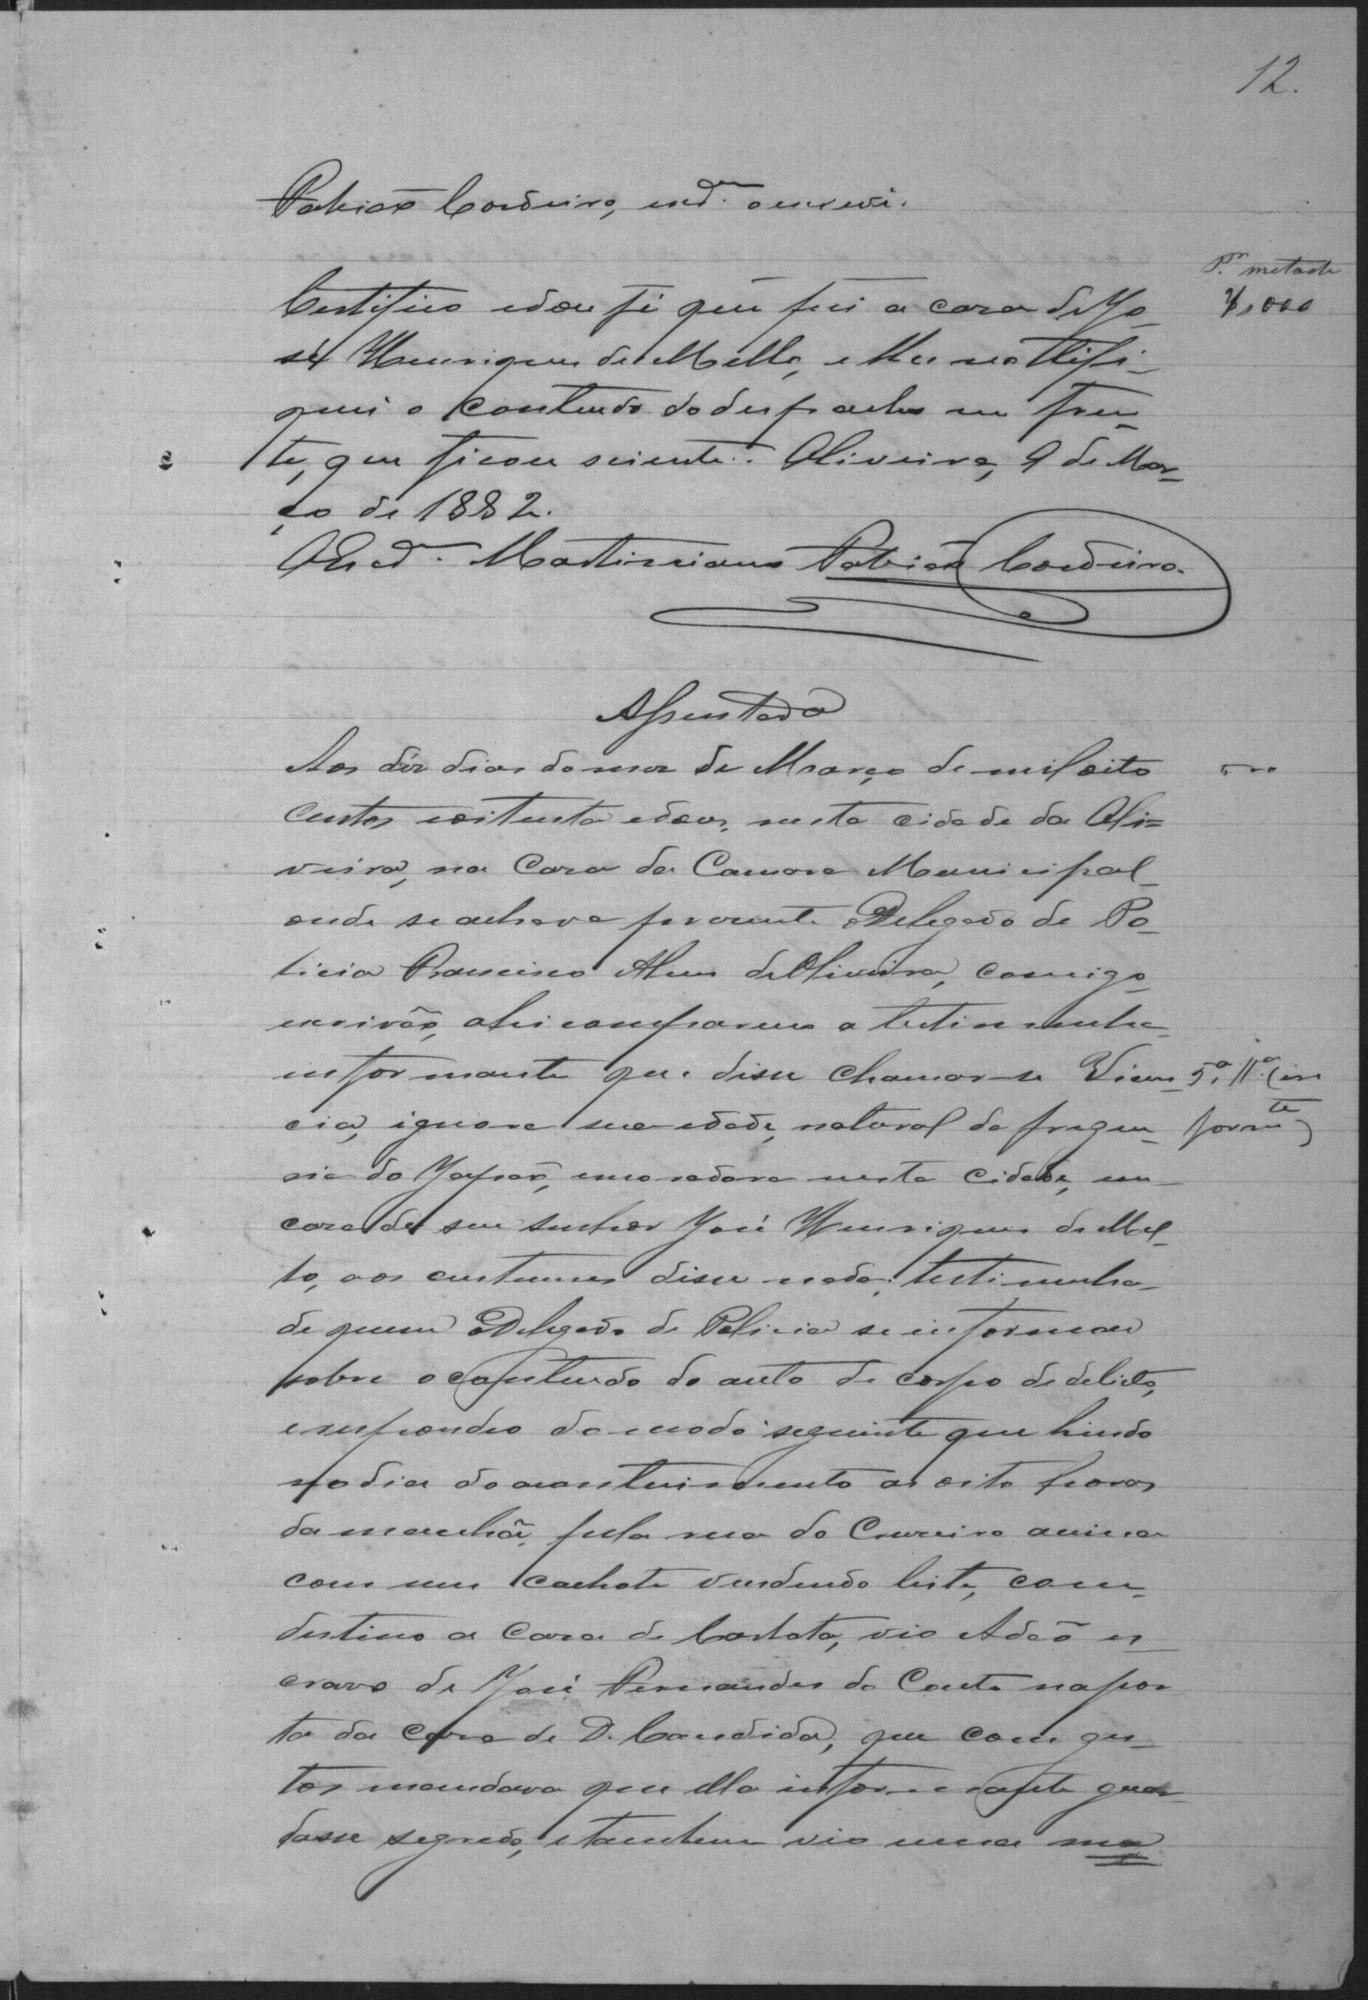 12.
Patricio Cordeiro, escr.am o escrevi.
Pr. metade
$1,000
Certifico e dou fé que fui a casa de Jo-
sé Henriques de Mello, e lhe notifi-
quei o contendo do despacho em fren-
te, que ficou sciente. Oliveira, 9 de Mar-
ço de 1882.
O Escr.am Martiniano Patricio Cordeiro.
Assentada
Aos déz dias do mez de Março de mil oito
centos e oitenta e dous, nesta cidade da Oli=
veira, na Casa da Camara Municipal
onde se achava prezente o Delegado de Po-
licia Francisco Alves de Oliveira, comigo
escrivão, ahi compareceo a testimunha
informante que disse chamar-se Vicen-
5.ª T.ª (in
cia, ignora sua edade, natural da fregue-
formte)
sia do Japão, e moradora nesta Cidade, em
casa de seu senhor José Henriques de Mel-
lo, aos custumes disse nada; testimunha
de quem o Delegado de Policia se informou
sobre o contendo do auto de corpo de delicto,
e respondeo do modo seguinte que hindo
no dia do acontecimento as oito horas
da manhã, pela rua do Cruzeiro acima
com um cachote vendendo leite, com
destino a casa de Carlota, vio Adão es-
cravo de José Fernandes do Couto na por
ta da casa de D. Candida, que com ges-
tos mandava que ella informante guar-
dasse segredo, e tambem vio uma ma